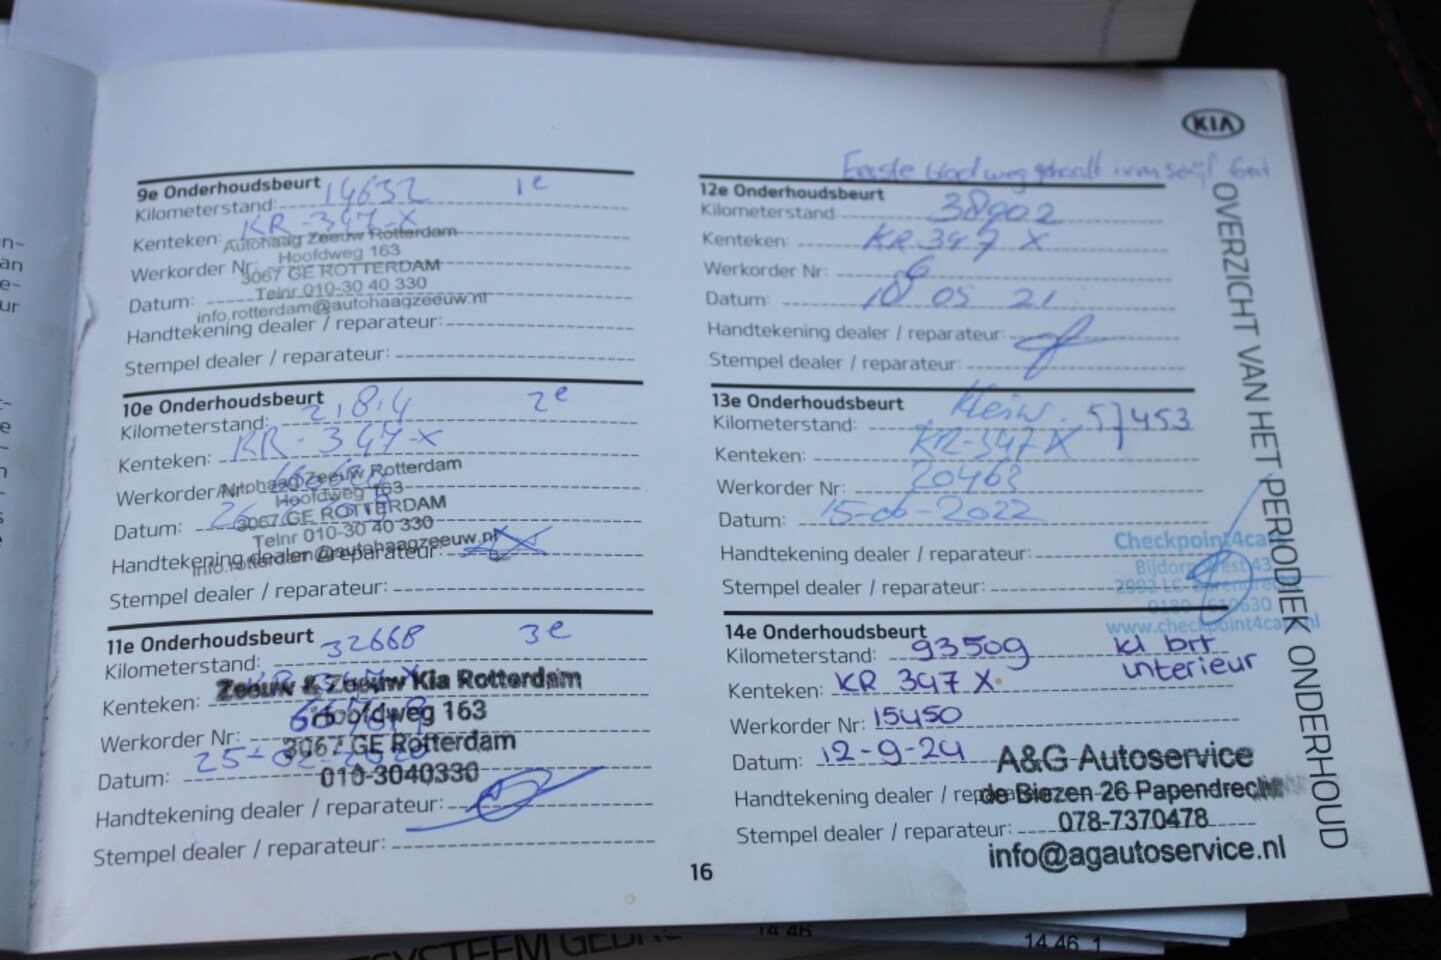 KIA
OVERZICHT VAN HET PERIODIEK ONDERHOUD
9e Onderhoudsbeurt
Kilometerstand: 14632 1e
Kenteken: KR-347-X
Werkorder Nr:
Datum:
Handtekening dealer / reparateur:
Stempel dealer / reparateur:
Autohaag Zeeuw Rotterdam
Hoofdweg 163
3067 GE ROTTERDAM
Telnr 010-30 40 330
info.rotterdam@autohaagzeeuw.nl
10e Onderhoudsbeurt
Kilometerstand: 21814 2e
Kenteken: KR-347-X
Werkorder Nr:
Datum:
Handtekening dealer / reparateur:
Stempel dealer / reparateur:
Autohaag Zeeuw Rotterdam
Hoofdweg 163
3067 GE ROTTERDAM
Telnr 010-30 40 330
info.rotterdam@autohaagzeeuw.nl
11e Onderhoudsbeurt
Kilometerstand: 32668 3e
Kenteken:
Werkorder Nr:
Datum: 25-02-2020
Handtekening dealer / reparateur:
Stempel dealer / reparateur:
Zeeuw & Zeeuw Kia Rotterdam
Hoofdweg 163
3067 GE Rotterdam
010-3040330
Eerste blad weg
12e Onderhoudsbeurt
Kilometerstand: 38902
Kenteken: KR 347 X
Werkorder Nr: 6
Datum: 18 05 21
Handtekening dealer / reparateur:
Stempel dealer / reparateur:
13e Onderhoudsbeurt
Kilometerstand: 57453
Kenteken: KR-347 X
Werkorder Nr: 20463
Datum: 15-06-2022
Handtekening dealer / reparateur:
Stempel dealer / reparateur:
Checkpoint4cars
www.checkpoint4cars.nl
14e Onderhoudsbeurt
Kilometerstand: 93509 kl brt
interieur
Kenteken: KR 347 X
Werkorder Nr: 15450
Datum: 12-9-24
Handtekening dealer / reparateur:
Stempel dealer / reparateur:
A&G Autoservice
de Biezen 26 Papendrecht
078-7370478
info@agautoservice.nl
16